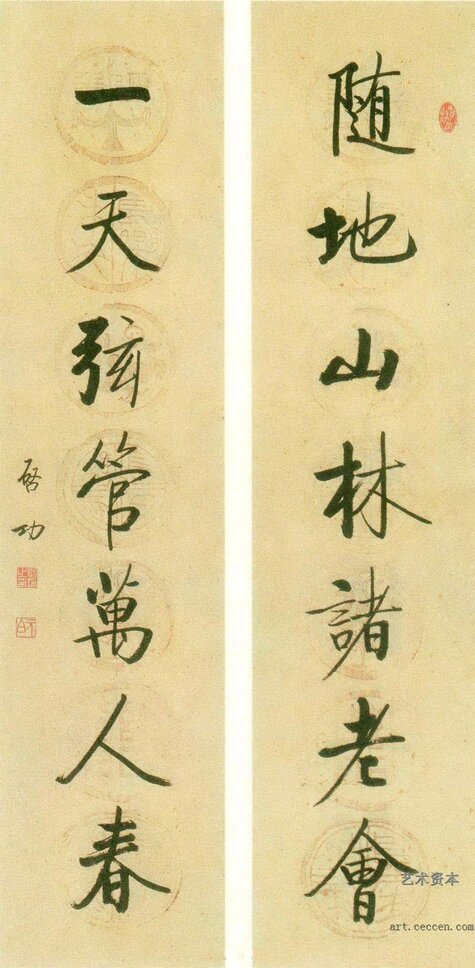 随地山林諸老會
一天弦管萬人春
启功
艺术资本
art.ceccen.com